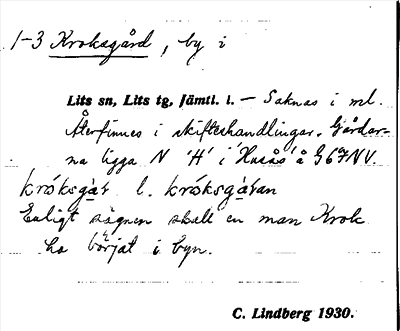 1-3 Kroksgård, by i
Lits sn, Lits tg, Jämtl. l. — Saknas i ml.
Återfinnes i skifteshandlingar. Gårdar-
na ligga N 'H' i 'Husås' å G 67 NV.
króksgàr l. króksgàran
Enligt sägnen skall en man Krok
ha börjat i byn.
C. Lindberg 1930.